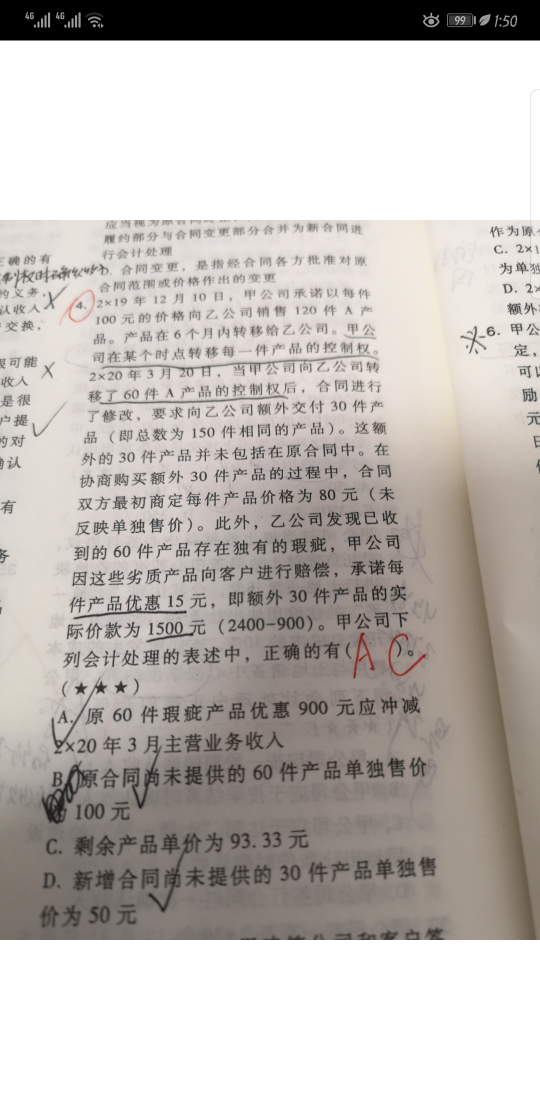 4G 4G 99 1:50
履约部分与合同变更部分合并为新合同进
行会计处理
D. 合同变更，是指经合同各方批准对原
合同范围或价格作出的变更
4. 2×19 年 12 月 10 日，甲公司承诺以每件
100 元的价格向乙公司销售 120 件 A 产
品。产品在 6 个月内转移给乙公司。甲公
司在某个时点转移每一件产品的控制权。
2×20 年 3 月 20 日，当甲公司向乙公司转
移了 60 件 A 产品的控制权后，合同进行
了修改，要求向乙公司额外交付 30 件产
品（即总数为 150 件相同的产品）。这额
外的 30 件产品并未包括在原合同中。在
协商购买额外 30 件产品的过程中，合同
双方最初商定每件产品价格为 80 元（未
反映单独售价）。此外，乙公司发现已收
到的 60 件产品存在独有的瑕疵，甲公司
因这些劣质产品向客户进行赔偿，承诺每
件产品优惠 15 元，即额外 30 件产品的实
际价款为 1500 元（2400-900）。甲公司下
列会计处理的表述中，正确的有( AC )。
(★★★)
A. 原 60 件瑕疵产品优惠 900 元应冲减
2×20 年 3 月主营业务收入
B. 原合同尚未提供的 60 件产品单独售价
100 元
C. 剩余产品单价为 93.33 元
D. 新增合同尚未提供的 30 件产品单独售
价为 50 元
正确的有
的义务
认收入
交换，
限可能
收入
是很
户提
的对
确认
有
务
作为原
C. 2×1
为单独
D. 2×
额外
6. 甲公
定，
可以
励
元